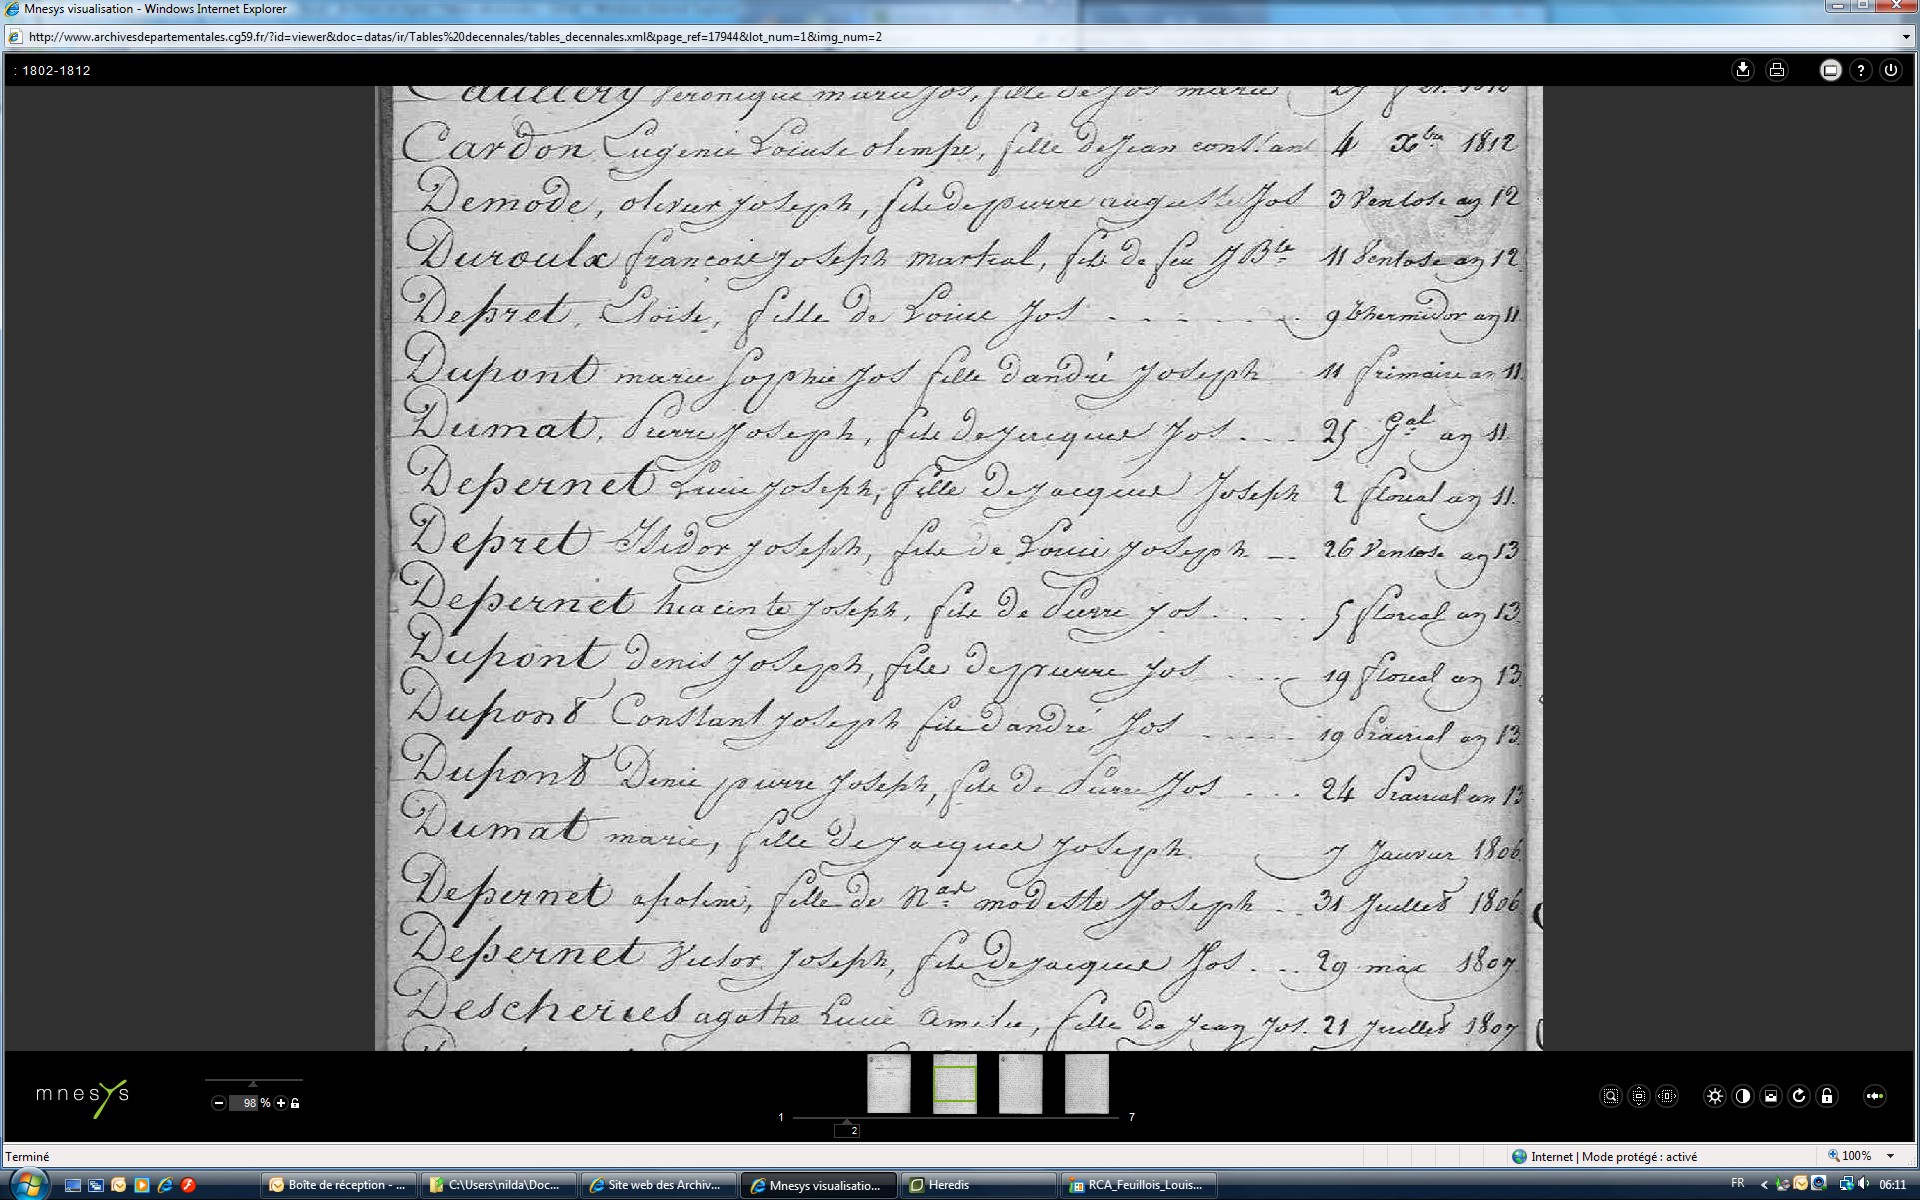 Mnesys visualisation - Windows Internet Explorer
http://www.archivesdepartementales.cg59.fr/?id=viewer&doc=datas/ir/Tables%20decennales/tables_decennales.xml&page_ref=17944&lot_num=1&img_num=2
: 1802-1812
Caullery Veronique marie Jos, fille de Jos marie
Cardon Eugenie Louise olimpe, fille de Jean const.ant 4 Xbre 1812
Demode, olivier Joseph, fils de pierre auguste Jos 3 Ventose an 12
Duroulx francois Joseph martial, fils de feu J Bte 11 Ventose an 12
Depret, Eloise, fille de Louis Jos 9 thermidor an 11
Dupont marie Sophie Jos fille d'andré Joseph 11 frimaire an 11
Dumat, Pierre Joseph, fils de Jacques Jos 25 Gal an 11
Depernet Lucie Joseph, fille de Jacques Joseph 2 floreal an 11.
Depret Isidor Joseph, fils de Louis Joseph 26 Ventose an 13
Depernet hiacinte Joseph, fils de Pierre Jos 5 floreal an 13
Dupont denis Joseph, fils de pierre Jos 19 floreal an 13
Dupont Constant Joseph fils d'andré Jos 19 Prairial an 13
Dupont Denis pierre Joseph, fils de Pierre Jos 24 Prairial an 13
Dumat marie, fille de Jacques Joseph. 7 Janvier 1806
Depernet apoline, fille de Nas modeste Joseph 31 Juillet 1806
Depernet Victor Joseph, fils de Jacques Jos 29 mai 1807
Descheries agathe Lucie Amelie, fille de Jean Jos. 21 Juillet 1807
mnesys
98 %
1
7
2
Terminé
Internet | Mode protégé : activé
100%
Boîte de réception - ...
C:\Users\nilda\Doc...
Site web des Archiv...
Mnesys visualisatio...
Heredis
RCA_Feuillois_Louis...
FR
06:11